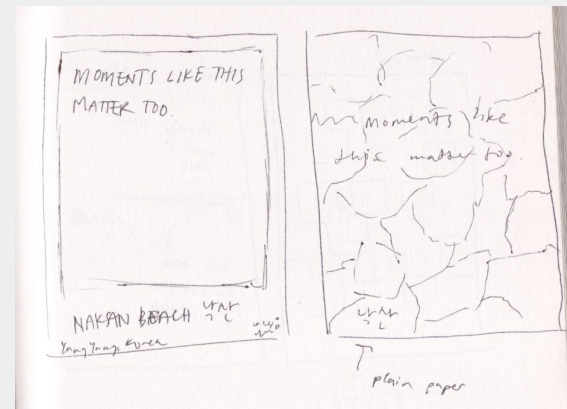 MOMENTS LIKE THIS
MATTER TOO.
NAKSAN BEACH 낙산
YangYang, Korea
Moments like
this matter too.
낙산
plain paper